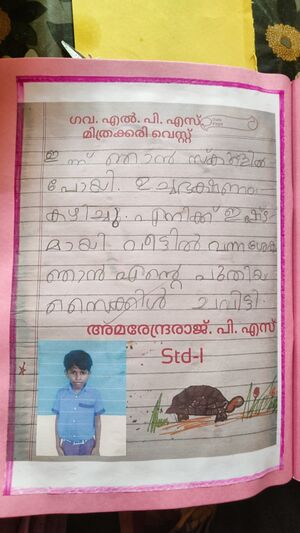 ഗവ. എൽ. പി. എസ്
മിത്രക്കരി വെസ്റ്റ്
ഇന്ന് ഞാൻ സ്കൂളിൽ
പോയി. ഉച്ചഭക്ഷണം
കഴിച്ചു. എനിക്ക് ഇഷ്ട
മായി. വീട്ടിൽ വന്നശേഷം
ഞാൻ എന്റെ പുതിയ
സൈക്കിൾ ചവിട്ടി.
അമരേന്ദ്രരാജ്. പി. എസ്
Std-I